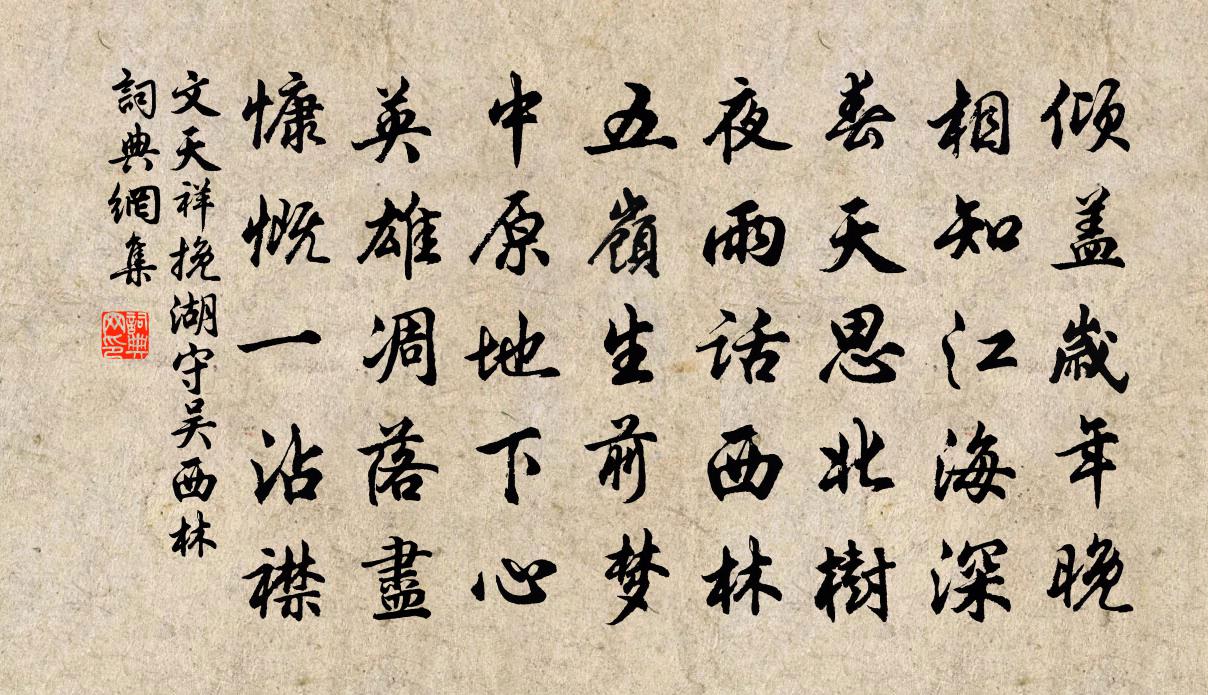 倾盖歲年晚
相知江海深
春天思北樹
夜雨話西林
五嶺生前梦
中原地下心
英雄凋落盡
慷慨一沾襟
文天祥挽湖守吴西林
詞典網集
詞典网印